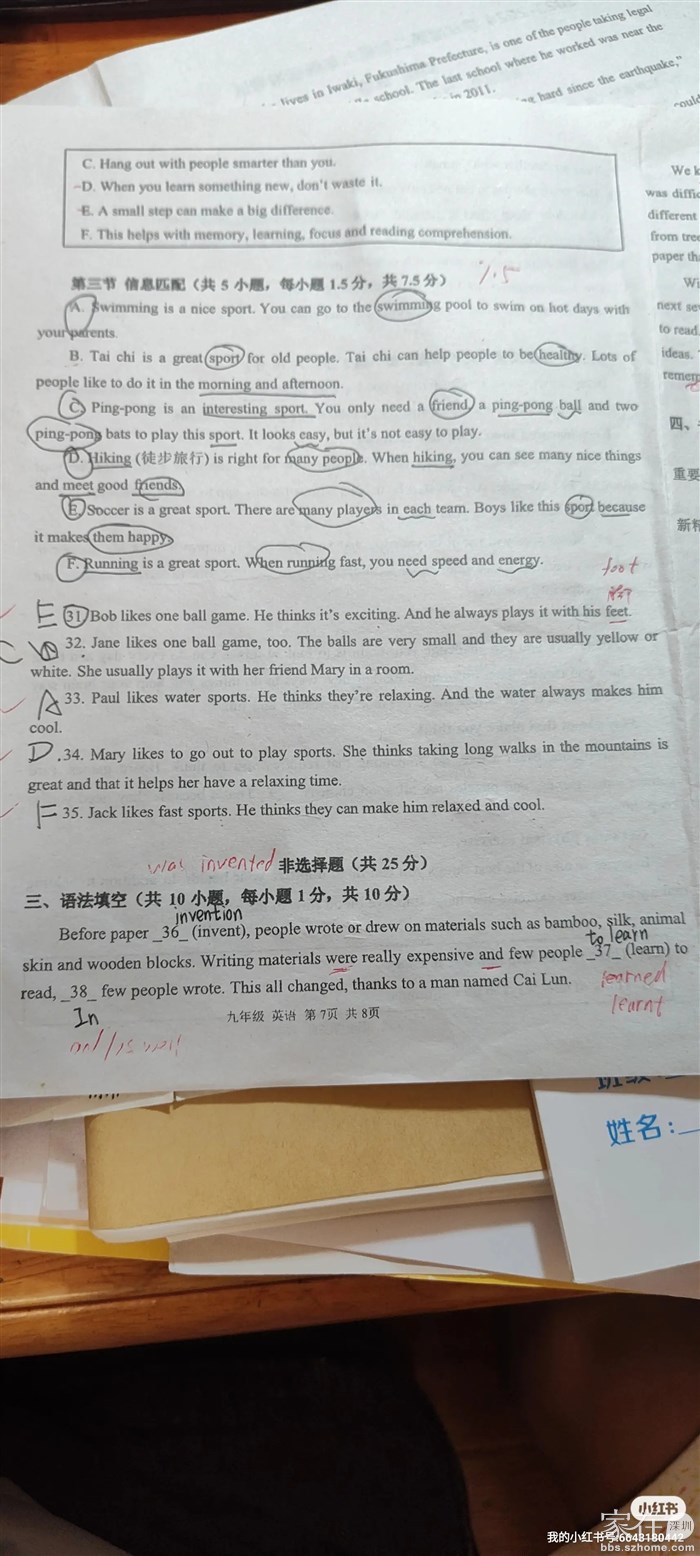 lives in Iwaki, Fukushima Prefecture, is one of the people taking legal
school. The last school where he worked was near the
in 2011.
hard since the earthquake,"
could
C. Hang out with people smarter than you.
D. When you learn something new, don't waste it.
E. A small step can make a big difference.
F. This helps with memory, learning, focus and reading comprehension.
We k
was diffic
different
from tree
paper th
Wi
next se
to read.
ideas.
remem
四、
重要
新精
第三节 信息匹配（共 5 小题，每小题 1.5 分，共 7.5 分）
A. Swimming is a nice sport. You can go to the swimming pool to swim on hot days with
your parents.
B. Tai chi is a great sport for old people. Tai chi can help people to be healthy. Lots of
people like to do it in the morning and afternoon.
C. Ping-pong is an interesting sport. You only need a friend, a ping-pong ball and two
ping-pong bats to play this sport. It looks easy, but it's not easy to play.
D. Hiking (徒步旅行) is right for many people. When hiking, you can see many nice things
and meet good friends.
E. Soccer is a great sport. There are many players in each team. Boys like this sport because
it makes them happy.
F. Running is a great sport. When running fast, you need speed and energy.
foot
E 31. Bob likes one ball game. He thinks it's exciting. And he always plays it with his feet.
C 32. Jane likes one ball game, too. The balls are very small and they are usually yellow or
white. She usually plays it with her friend Mary in a room.
A 33. Paul likes water sports. He thinks they're relaxing. And the water always makes him
cool.
D 34. Mary likes to go out to play sports. She thinks taking long walks in the mountains is
great and that it helps her have a relaxing time.
F 35. Jack likes fast sports. He thinks they can make him relaxed and cool.
was invented 非选择题（共 25 分）
三、语法填空（共 10 小题，每小题 1 分，共 10 分）
invention
Before paper _36_ (invent), people wrote or drew on materials such as bamboo, silk, animal
to learn
skin and wooden blocks. Writing materials were really expensive and few people _37_ (learn) to
read, _38_ few people wrote. This all changed, thanks to a man named Cai Lun.
learned
learnt
In
九年级 英语 第 7页 共 8页
班级:
姓名:
小红书
我的小红书号:6648180442
家在深圳
bbs.szhome.com